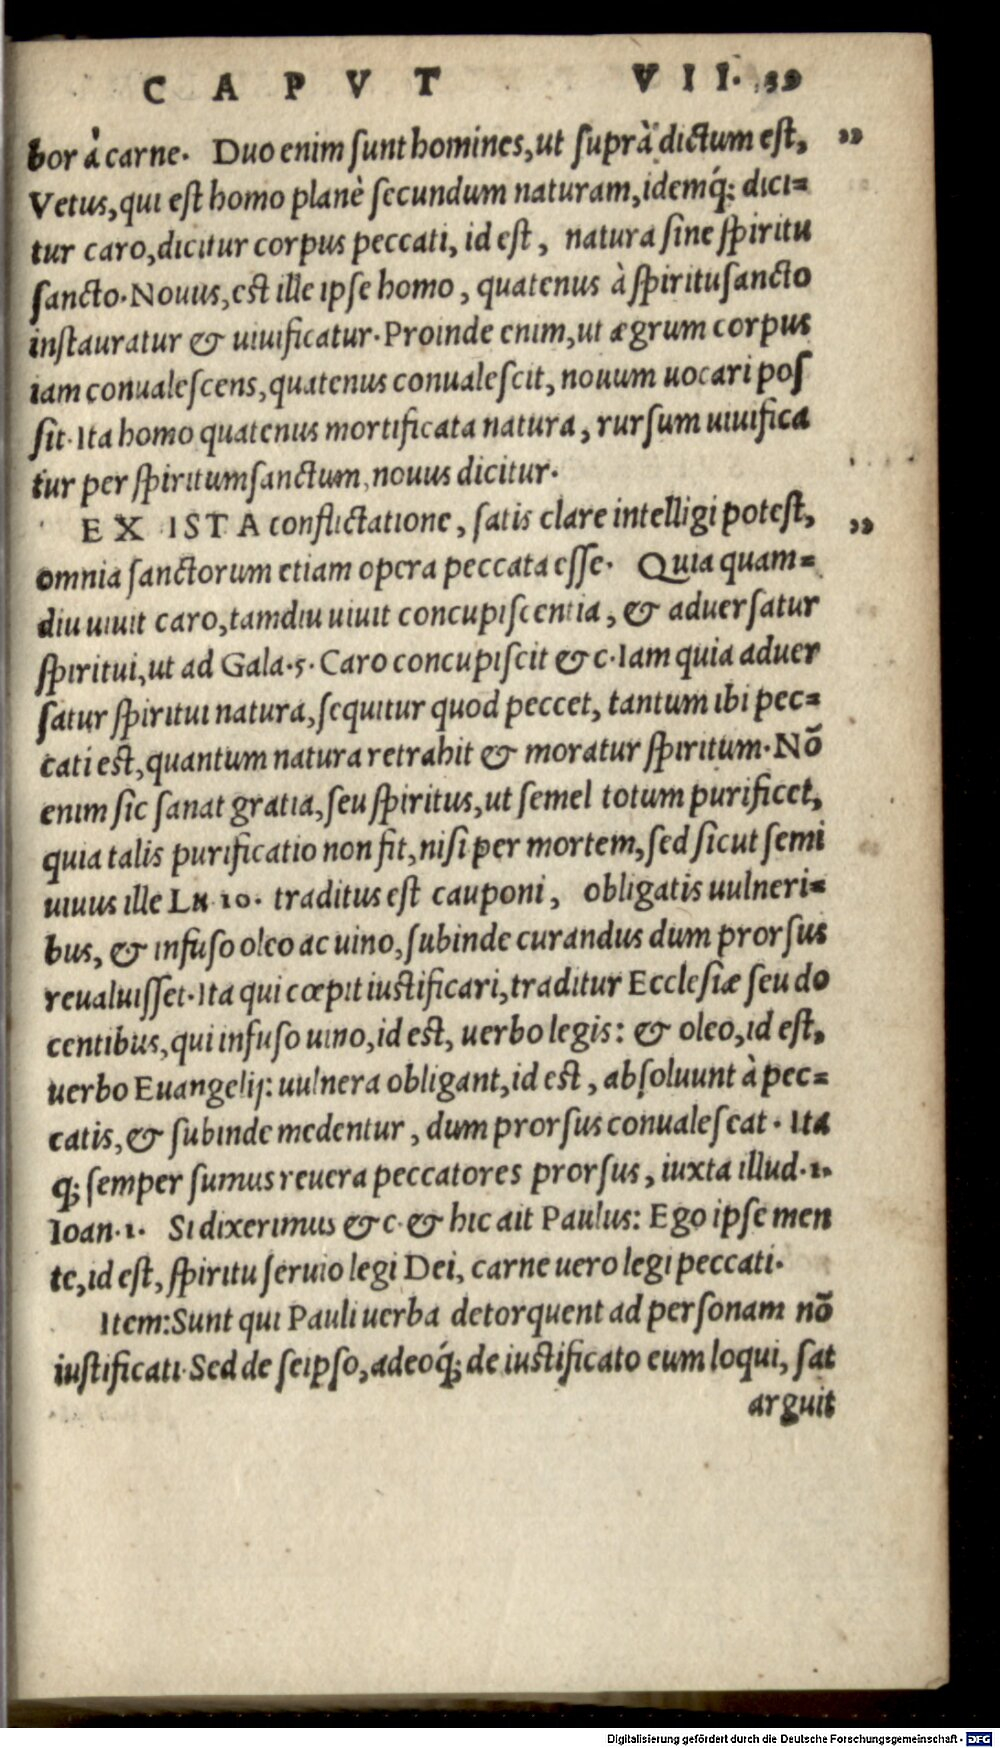 CAPVT VII. 59
bor à carne. Duo enim ſunt homines, ut ſuprà dictum eſt, „
Vetus, qui eſt homo planè ſecundum naturam, idemq́; dici=
tur caro, dicitur corpus peccati, id eſt, natura ſine ſpiritu
ſancto. Nouus, eſt ille ipſe homo, quatenus à ſpirituſancto
inſtauratur & uiuificatur. Proinde enim, ut ægrum corpus
iam conualeſcens, quatenus conualeſcit, nouum uocari poſ
ſit. Ita homo quatenus mortificata natura, rurſum uiuifica
tur per ſpiritumſanctum, nouus dicitur.
EX ISTA conflictatione, ſatis clare intelligi poteſt, „
omnia ſanctorum etiam opera peccata eſſe. Quia quam=
diu uiuit caro, tamdiu uiuit concupiſcentia, & aduerſatur
ſpiritui, ut ad Gala. 5. Caro concupiſcit &c. Iam quia aduer
ſatur ſpiritui natura, ſequitur quod peccet, tantum ibi pec=
cati eſt, quantum natura retrahit & moratur ſpiritum. Nō
enim ſic ſanat gratia, ſeu ſpiritus, ut ſemel totum purificet,
quia talis purificatio non fit, niſi per mortem, ſed ſicut ſemi
uiuus ille Lu 10. traditus eſt cauponi, obligatis uulneri=
bus, & infuſo oleo ac uino, ſubinde curandus dum prorſus
reualuiſſet. Ita qui cœpit iuſtificari, traditur Eccleſiæ ſeu do
centibus, qui infuſo uino, id eſt, uerbo legis: & oleo, id eſt,
uerbo Euangelij: uulnera obligant, id eſt, abſoluunt à pec=
catis, & ſubinde medentur, dum prorſus conualeſcat. Ita
q; ſemper ſumus reuera peccatores prorſus, iuxta illud. 1.
Ioan. 1. Si dixerimus &c. & hic ait Paulus: Ego ipſe men
te, id eſt, ſpiritu ſeruio legi Dei, carne uero legi peccati.
Item: Sunt qui Pauli uerba detorquent ad perſonam nō
iuſtificati. Sed de ſeipſo, adeoq́; de iuſtificato eum loqui, ſat
arguit
Digitalisierung gefördert durch die Deutsche Forschungsgemeinschaft - DFG